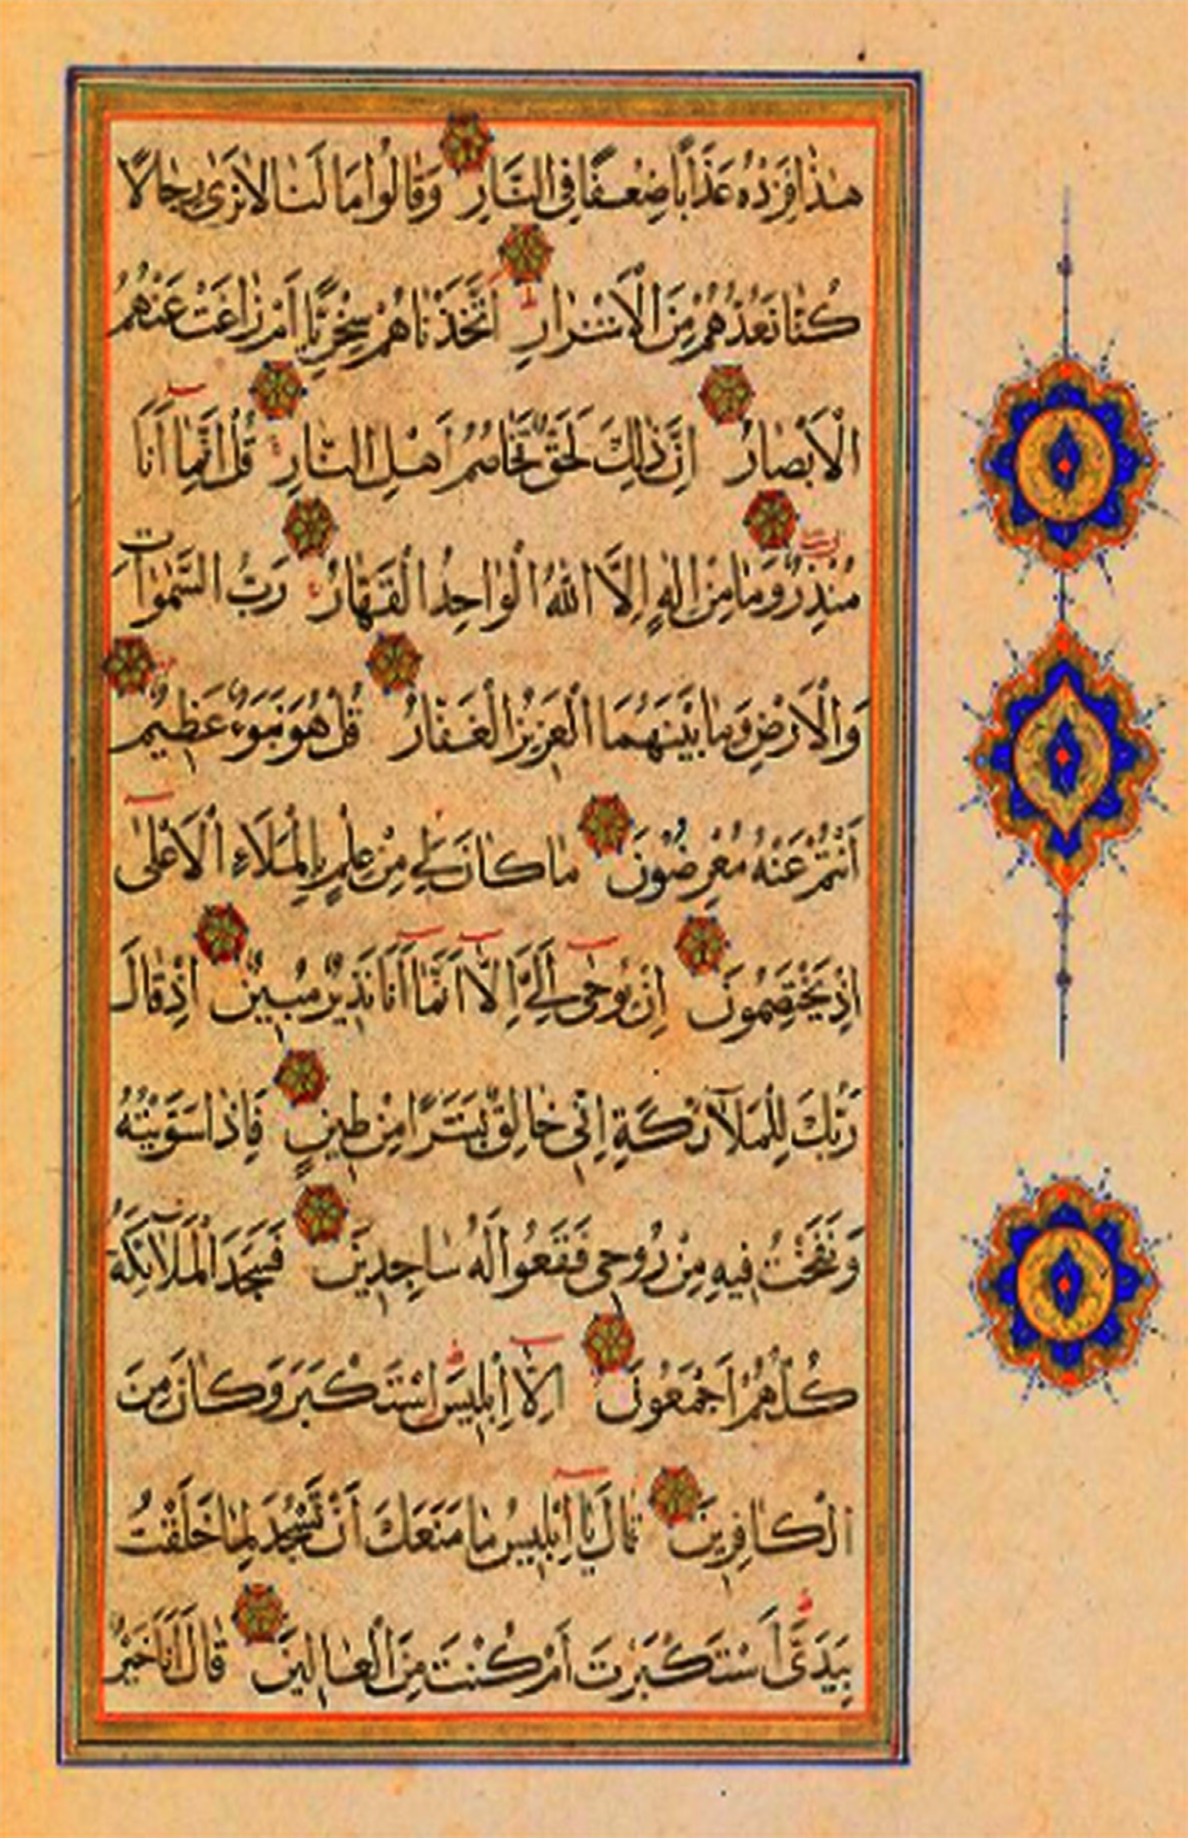 هٰذَا فَزِدْهُ عَذَابًا ضِعْفًا فِي النَّارِ وَقَالُوا مَا لَنَا لَا نَرٰى رِجَالًا
كُنَّا نَعُدُّهُمْ مِنَ الْاَشْرَارِ اَتَّخَذْنَاهُمْ سِخْرِيًّا اَمْ زَاغَتْ عَنْهُمُ
الْاَبْصَارُ اِنَّ ذٰلِكَ لَحَقٌّ تَخَاصُمُ اَهْلِ النَّارِ قُلْ اِنَّمَا اَنَا
مُنْذِرٌ وَمَا مِنْ اِلٰهٍ اِلَّا اللّٰهُ الْوَاحِدُ الْقَهَّارُ رَبُّ السَّمٰوَاتِ
وَالْاَرْضِ وَمَا بَيْنَهُمَا الْعَزِيزُ الْغَفَّارُ قُلْ هُوَ نَبَؤٌ عَظِيمٌ
اَنْتُمْ عَنْهُ مُعْرِضُونَ مَا كَانَ لِيَ مِنْ عِلْمٍ بِالْمَلَاءِ الْاَعْلٰى
اِذْ يَخْتَصِمُونَ اِنْ يُوحٰى اِلَيَّ اِلَّا اَنَّمَا اَنَا نَذِيرٌ مُبِينٌ اِذْ قَالَ
رَبُّكَ لِلْمَلٰٓائِكَةِ اِنِّي خَالِقٌ بَشَرًا مِنْ طِينٍ فَاِذَا سَوَّيْتُهُ
وَنَفَخْتُ فِيهِ مِنْ رُوحِي فَقَعُوا لَهُ سَاجِدِينَ فَسَجَدَ الْمَلٰٓائِكَةُ
كُلُّهُمْ اَجْمَعُونَ اِلَّا اِبْلِيسَ اسْتَكْبَرَ وَكَانَ مِنَ
الْكَافِرِينَ قَالَ يَا اِبْلِيسُ مَا مَنَعَكَ اَنْ تَسْجُدَ لِمَا خَلَقْتُ
بِيَدَيَّ اَسْتَكْبَرْتَ اَمْ كُنْتَ مِنَ الْعَالِينَ قَالَ اَنَا خَيْرٌ